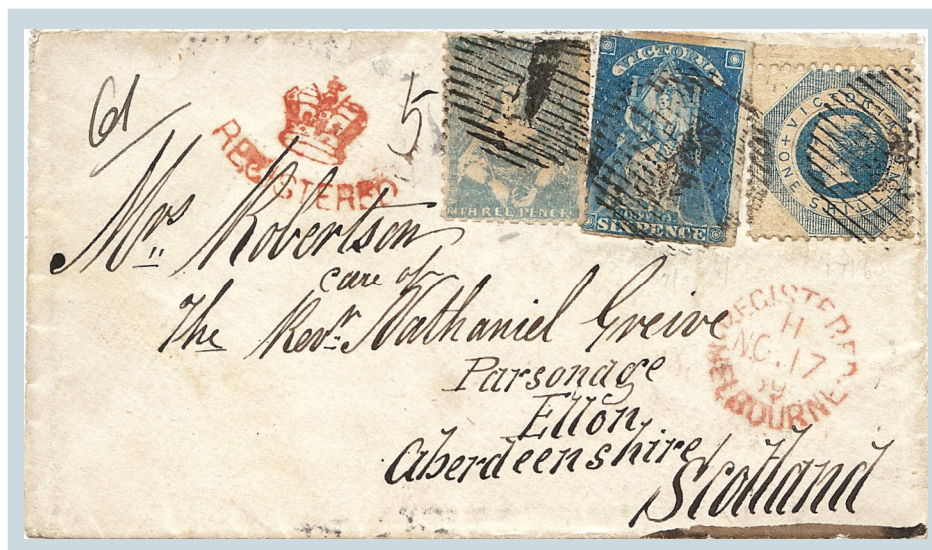 6d
5
REGISTERED
THREE PENCE
VICTORIA
POSTAGE
SIX PENCE
VICTORIA
ONE SHILLING
Mrs Robertson
care of
The Revd. Nathaniel Greive
Parsonage
Ellon
Aberdeenshire
Scotland
REGISTERED
H
NO. 17
59
MELBOURNE